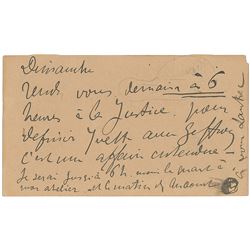 Dimanche
rendez vous demain à 6
heures à la Justice, pour
définir Yvette avec Geffroy
c'est une affaire entendue —
Je serai jusqu'à 6 h. moins le quart à
mon atelier, et le matin
à vous